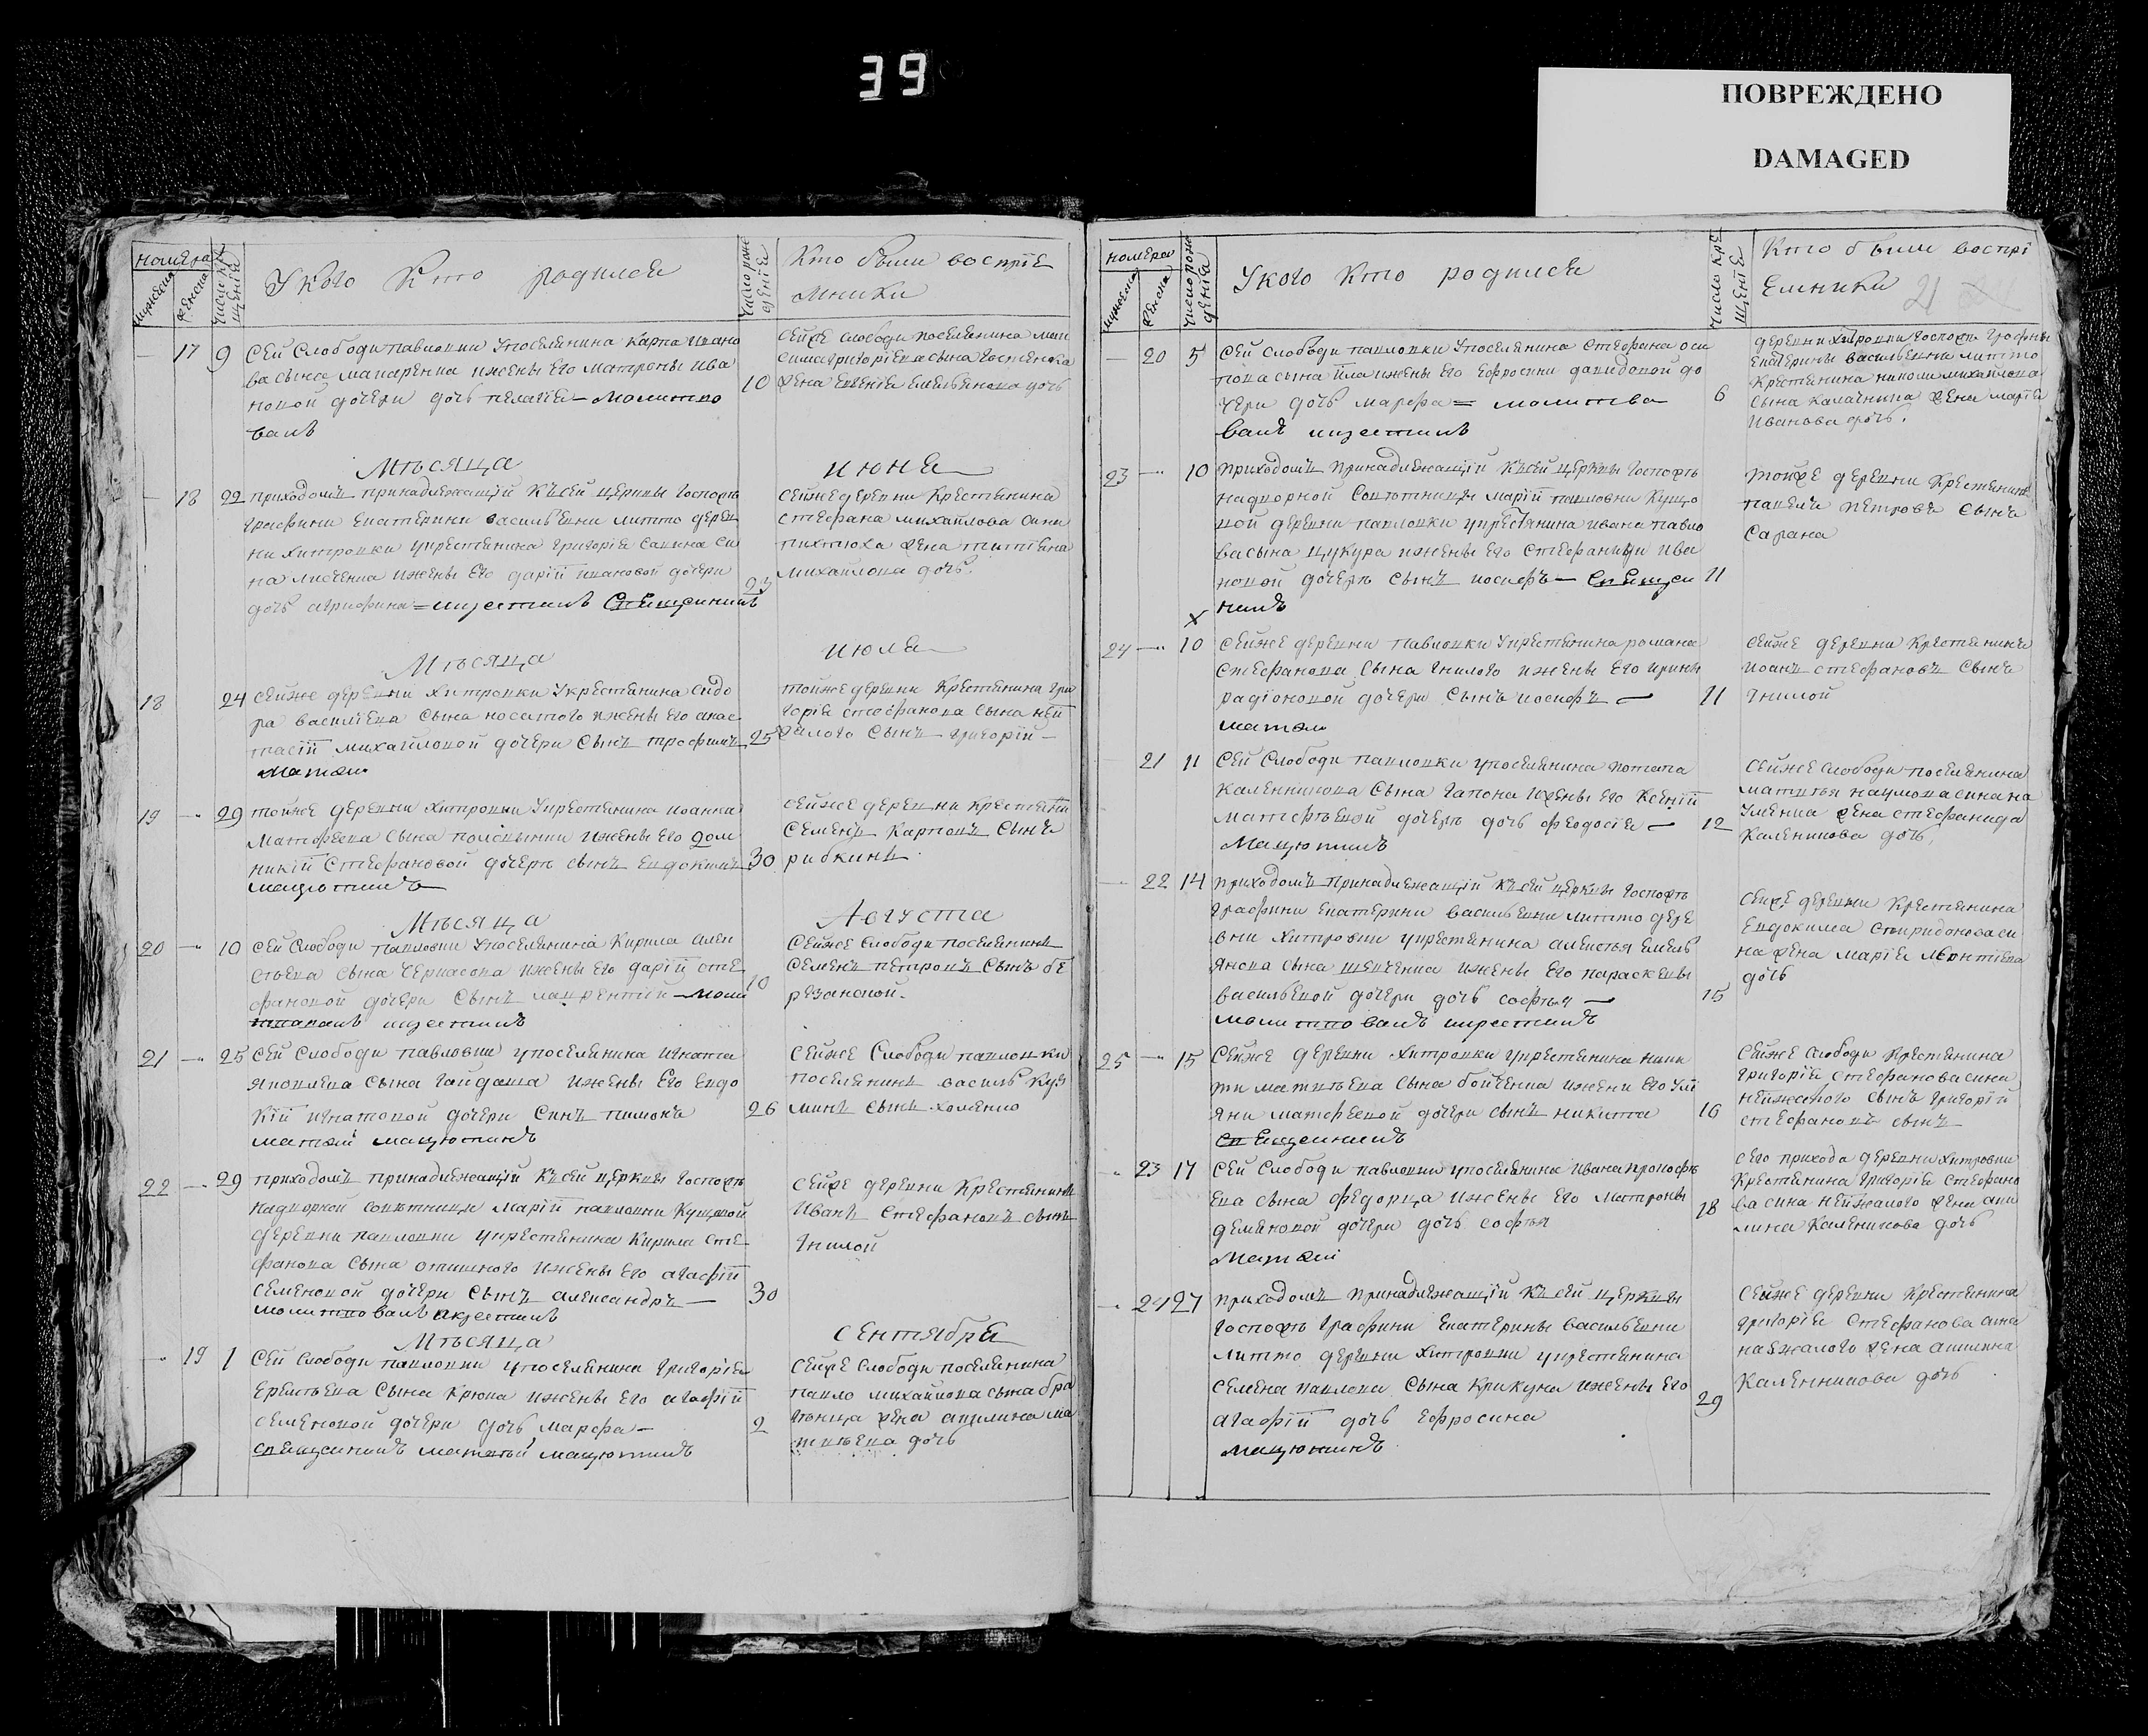 39
ПОВРЕЖДЕНО
DAMAGED
номера
мужеска
женска
У кого Кто родился
Кто были воспріе
мники
17 9 Сей Слободи павловки У поселянина Карпа Ивано
ва сына макаренка ижены его матроны ива
новой дочери дочь пелагіе — молитво
валъ
10
сейже слободи поселянина мак
сима григоріева сына
жена евгеніе емельянова дочь
Мѣсяца июня
18 22 приходомъ принадлежащій Ксей церкви Госпожѣ
Графини Екатерини васильевни литто дерев
ни хитровки укрестянина григоріе савина си
на лисченка ижены его дарій ивановой дочери
дочь агрифина = икрестилъ Священникъ
23
сейже деревни Крестянина
стефана михайлова сина
пихтюха жена татіяна
михайлова дочь.
Мѣсяца июля
18 24 сейже деревни хитровки Укрестянина сидо
ра василіева сына носатого ижены его анас
тасій михайловой дочери сынъ трофимъ
матвей
25
тойже деревни Крестянина гри
горіе стефанова сына ней
жалого сынъ григорій —
19 — 29 тойже деревни хитровки Укрестянина иоанна
матфеева сына ижены его дом
никій стефановой дочерѣ сынъ евдокимъ
мацютинъ
30
сейже деревни крестянинъ
семенъ карповъ сынъ
рибкинъ
Мѣсяца Августа
20 — 10 Сей слободи павловки У поселянина Кирила алек
сѣева сына черкасова ижены его дарій сте
фановой дочери сынъ лаврентій — моли
твовалъ икрестилъ
10
сейже слободи поселянинъ
семенъ петровъ сынъ бе
резанской.
21 — 25 Сей слободи павловки у поселянина игната
яковлева сына гайдаша ижены его евдо
кій игнатовой дочери синъ пимонъ
матвей мацютинъ
26
сейже слободи павловки
поселянинъ василь куз
минъ сынъ хоменко
22 — 29 приходомъ принадлежащій Ксей церкви Госпожѣ
надворной совѣтници маріи павловни Кущовой
деревни павловки укрестянина Кирила сте
фанова сына ижены его агафій
семеновой дочери сынъ александръ —
молитвовалъ икрестилъ
30
сейже деревни Крестянинъ
Иванъ Стефановъ сынъ
Гнилой
Мѣсяца сентября
— 19 1 Сей слободи павловки у поселянина григоріе
еремѣева сына крюка ижены его агафій
семеновой дочери дочь марфа —
священникъ матвей мацютинъ
2
сейже слободи поселянина
павло михайлова сына
жена акилина ма
твѣева дочь
номера
женска
У кого Кто родился
Кто были воспрі
емники
21
— 20 5 Сей слободи павловки У поселянина стефана оси
пова сына ижены его ефросини давидовой до
чери дочь марфа = молитво
валъ икрестилъ
6
деревни хитровки госпожи Графины
Екатерины васильевни литто
крестянина николи михайлова
сына калачника жена маріе
иванова дочь.
23 — 10 приходомъ принадлежащій Ксей церкви Госпожѣ
надворной совѣтници маріи павловни Кущо
вой деревни павловки укрестянина ивана павло
ва сына цукура ижены его стефаниди ива
новой дочерѣ сынъ иосифъ — Священ
никъ
11
х
тойже деревни Крестянинъ
павелъ петровъ сынъ
сарана
24 — 10 сейже деревни павловки Укрестянина романа
стефанова сына гнилого ижены его ирины
радіоновой дочери сынъ иосифъ —
матвей
11
сейже деревни крестянинъ
иоанъ стефановъ сынъ
гнилой
21 11 Сей слободи павловки у поселянина потапа
каленникова сына гапона ижены его ксеній
матфѣевой дочерѣ дочь феодосіе —
Мацютинъ
12
сейже слободи поселянина
матвѣя наумова сина на
уменка жена стефанида
каленикова дочь,
— 22 14 приходомъ принадлежащій Ксей церкви Госпожѣ
графини екатерини васильевни литто дере
вни хитровки укрестянина алексѣя емель
янова сына шевченка ижены его параскевы
васильевой дочери дочь софья —
молитвовалъ икрестилъ
15
сейже деревни крестянина
евдокима спиридонова си
на жена маріе леонтіева
дочь
25 — 15 Сейже деревни хитровки укрестянина ники
ти матвѣева сына бойченка ижени его ули
яни матфеевой дочери сынъ никита
священникъ
16
сейже слободи крестянина
григоріе стефанова сина
нейжалого сынъ григорій
стефановъ сынъ
— 23 17 Сей слободи павловки у поселянина ивана прокофѣ
ева сына федорца ижены его матроны
демяновой дочери дочь софья
матвей
18
сего прихода деревни хитровки
крестянина григоріе стефано
ва сина нейжалого жена аки
лина каленикова дочь
— 24 27 приходомъ принадлежащій Ксей церкви
госпожѣ графини екатерины васильевни
литто деревни хитровки укрестянина
семена павлова сына крикуна ижены его
агафій дочь ефросина
мацютинъ
29
сейже деревни крестянина
григоріе стефанова сина
нейжалого жена акилина
каленникова дочь